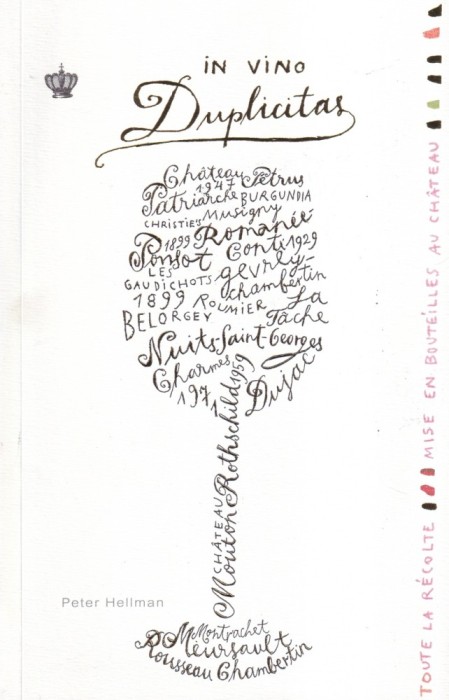 in vino
Duplicitas
Château Petrus
1947
Patriarche BURGUNDIA
CHRISTIES Musigny
1899 Romanée
Ponsot Conti 1929
LES gevrey-
GAUDICHOTS chambertin
1899 ROUMIER La
BELORGEY Tâche
Nuits-Saint-Georges
Charmes 1959 Dujac
1971
CHÂTEAU
Mouton Rothschild
Peter Hellman
Montrachet
Meursault
Rousseau Chambertin
TOUTE LA RÉCOLTE MISE EN BOUTEILLES AU CHÂTEAU